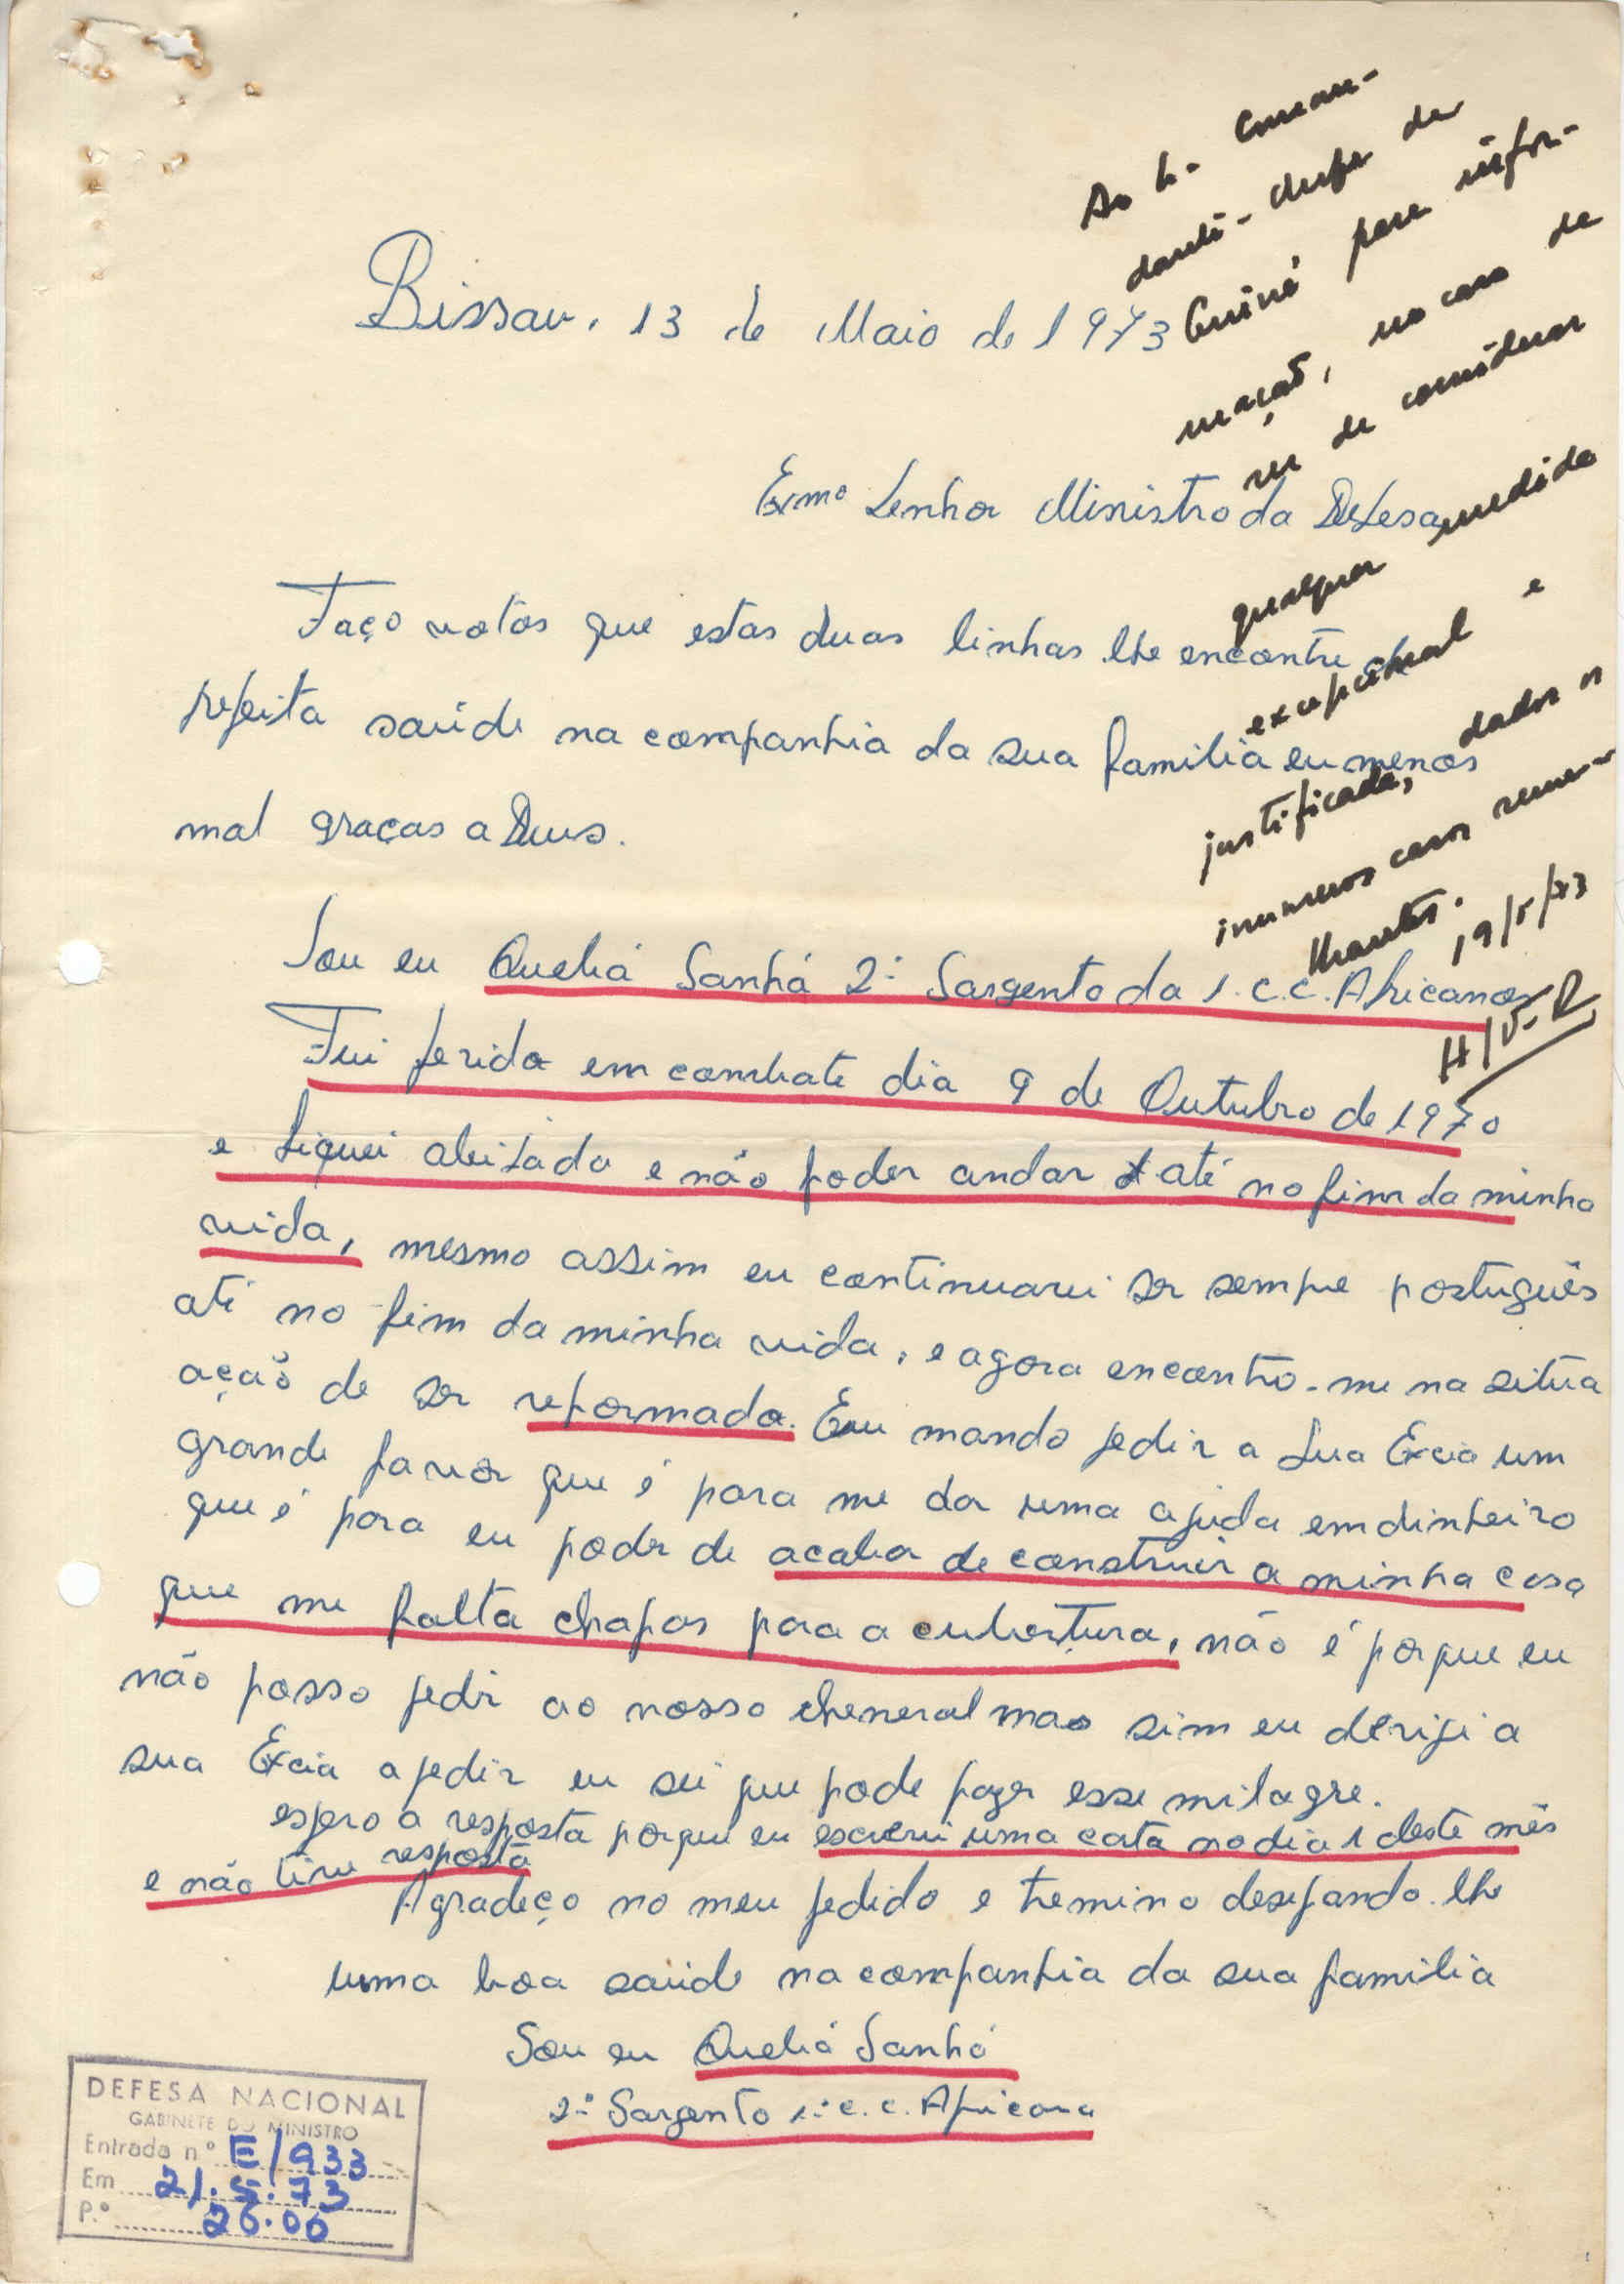 Bissau, 13 de Maio de 1973
Exmº Senhor Ministro da Defesa
Faço votos que estas duas linhas lhe encontre de
prefeita saúde na companhia da sua familia eu menos
mal graças a Deus.
Sou eu Quebá Sanhá 2º Sargento da 1. C. C. Africanos
Fui ferido em combate dia 9 de Outubro de 1970
e fiquei aleijado e não poder andar até no fim da minha
vida, mesmo assim eu continuarei ser sempre português
até no fim da minha vida, e agora encontro-me na situa
ação de ser reformado. Eu mando pedir a Sua Excia um
grande favor que é para me dar uma ajuda em dinheiro
que é para eu poder de acabar de construir a minha casa
que me falta chapas para a cubertura, não é porque eu
não posso pedir ao nosso cheneral mas sim eu dirigi a
sua Excia a pedir eu sei que pode fazer esse milagre.
espero a resposta porque eu escrevi uma carta no dia 1 deste mês
e não tive resposta
Agradeço no meu pedido e tremino desejando-lhe
uma boa saúde na companhia da sua familia
Sou eu Quebá Sanhá
2º Sargento 1ª C. C. Africana
Ao Comandante-chefe da
Guiné para infor-
mação, no caso de
ser de considerar
qualquer medida
excepcional e
justificada, dados os
inumeros casos seme-
lhantes.
19/5/73
DEFESA NACIONAL
GABINETE DO MINISTRO
Entrada n.º E/933
Em 21.5.73
P.º 26.00